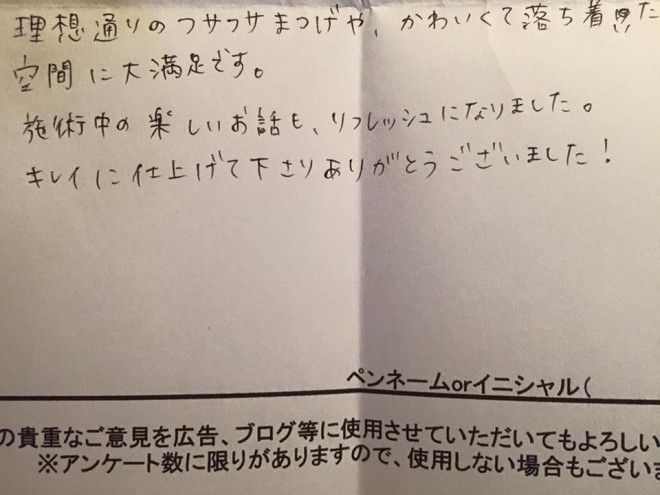 理想通りのフサフサまつげや、かわいくて落ち着いた
空間に大満足です。
施術中の楽しいお話も、リフレッシュになりました。
キレイに仕上げて下さりありがとうございました！
ペンネームorイニシャル(
の貴重なご意見を広告、ブログ等に使用させていただいてもよろしい
※アンケート数に限りがありますので、使用しない場合もございま